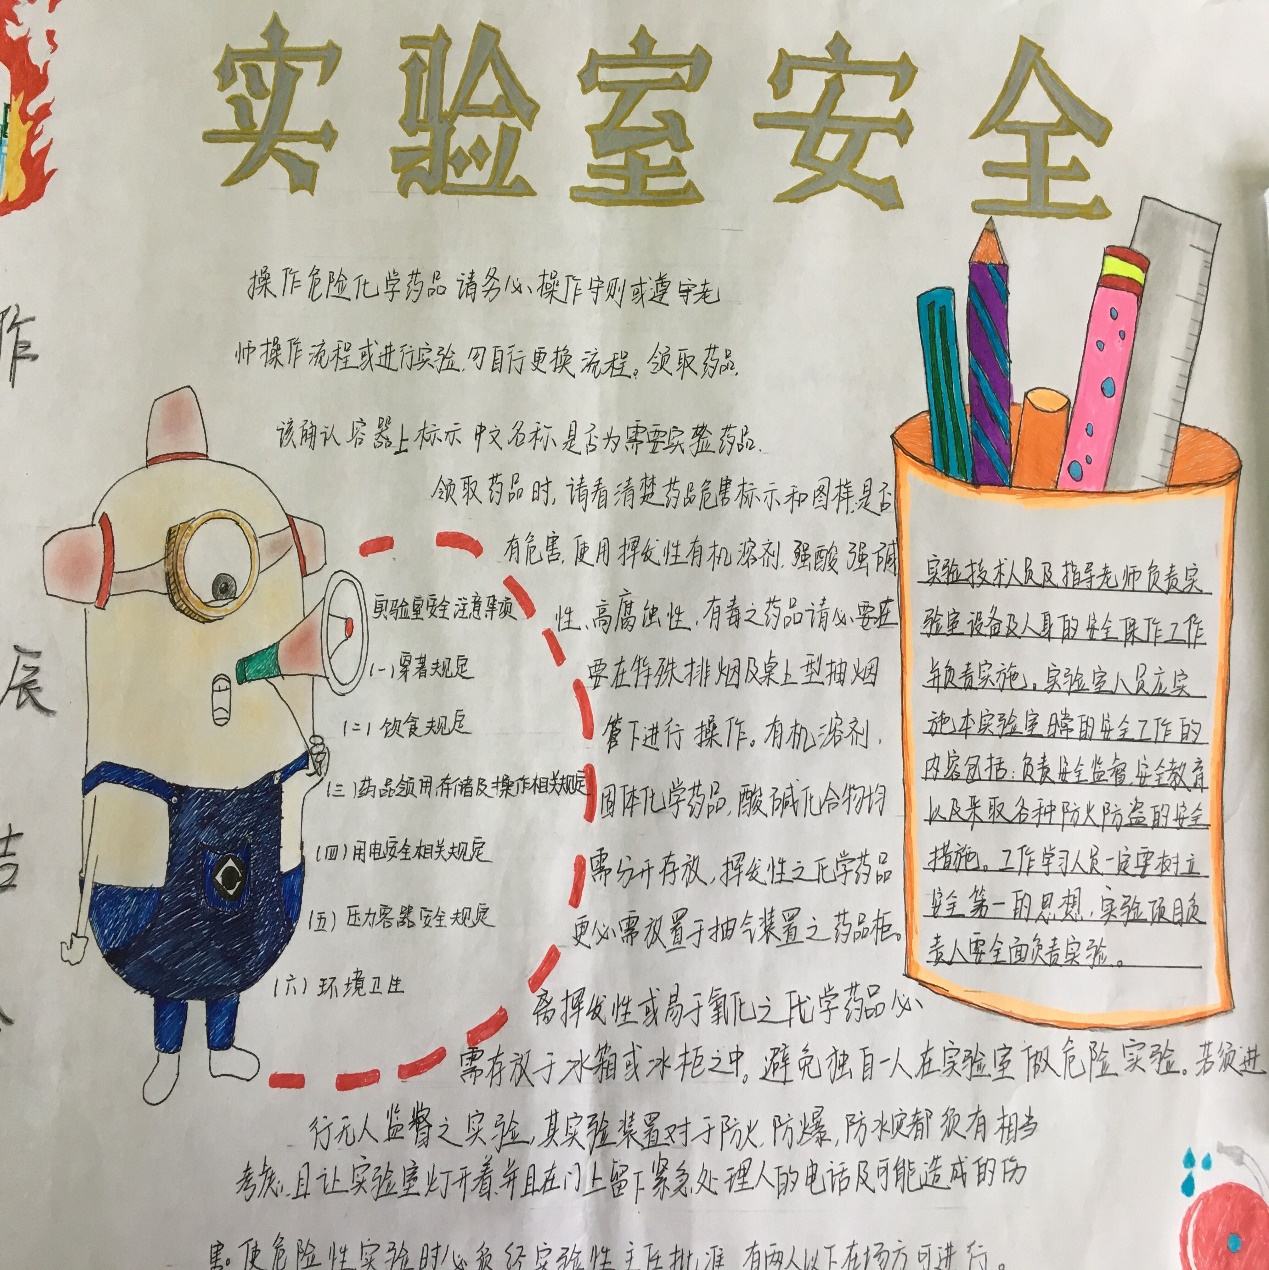 实验室安全
作
辰
吉
操作危险化学药品请务必操作守则或遵守老
师操作流程或进行实验,勿自行更换流程。领取药品,
该确认容器上标示中文名称是否为需要实验药品.
领取药品时,请看清楚药品危害标示和图样是否
有危害,使用挥发性有机溶剂.强酸强碱
性、高腐蚀性,有毒之药品请必要在
要在特殊排烟及桌上型抽烟
管下进行操作。有机溶剂,
固体化学药品,酸碱化合物均
需分开存放,挥发性之化学药品
更必需放置于抽气装置之药品柜。
离挥发性或易于氧化之化学药品必
需存放于冰箱或冰柜之中。避免独自一人在实验室做危险实验。若须进
行无人监督之实验,其实验装置对于防火.防爆,防水灾都须有相当
考虑,且让实验室灯开着,并且在门上留下紧急处理人的电话及可能造成的伤
害。使危险性实验时必须经实验性主任批准,有两人以下在场方可进行。
实验室安全注意事项
(一)穿著规定
(二)饮食规定
(三)药品领用存储及操作相关规定
(四)用电安全相关规定
(五)压力容器安全规定
(六)环境卫生
实验技术人员及指导老师负责实
验室设备及人身的安全保作工作
并负责实施。实验室人员应实
施本实验室日常的安全工作的
内容包括:负责安全监督,安全教育
以及采取各种防火防盗的安全
措施。工作学习人员一定要树立
安全第一的思想,实验项目负
责人要全面负责实验。